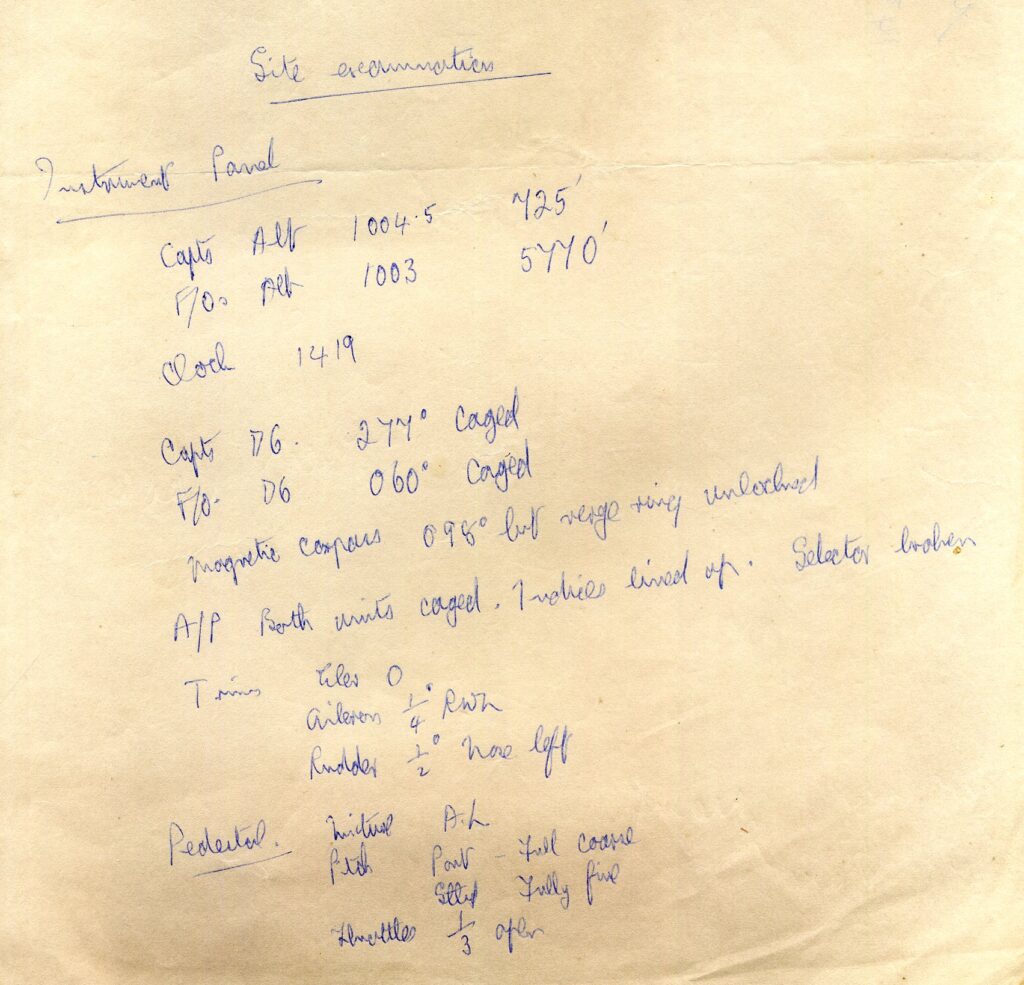 Site examination
Instrument Panel
Capts Alt 1004.5 725'
F/Os Alt 1003 5770'
Clock 1419
Capts DG. 277° Caged
F/O. DG 060° Caged
Magnetic compass 098° but verge ring unlocked
A/P Both units caged. Indices lined up. Selector broken
Trims Elev 0
Aileron 1/4° RWL
Rudder 1/2° Nose left
Pedestal. Mixture A.L
Pitch Port - Full coarse
Stbd Fully fine
Throttles 1/3 open